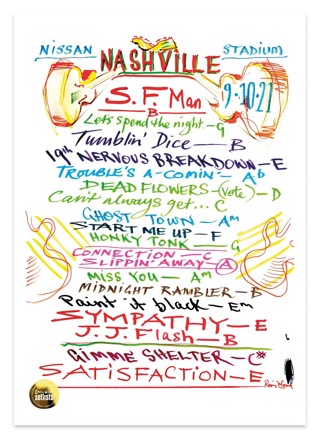 NISSAN NASHVILLE STADIUM
9-10-21
S.F. Man
B
Let's spend the night - G
Tumblin' Dice - B
19th NERVOUS BREAKDOWN - E
TROUBLE'S A-COMIN' - Ab
DEAD FLOWERS - (Vote) - D
Can't always get... C
GHOST TOWN - Am
START ME UP - F
HONKY TONK - G
CONNECTION - C
SLIPPIN' AWAY - A
MISS YOU - Am
MIDNIGHT RAMBLER - B
Paint it black - Em
SYMPATHY - E
J.J. Flash - B
GIMME SHELTER - C#
SATISFACTION - E
setlists